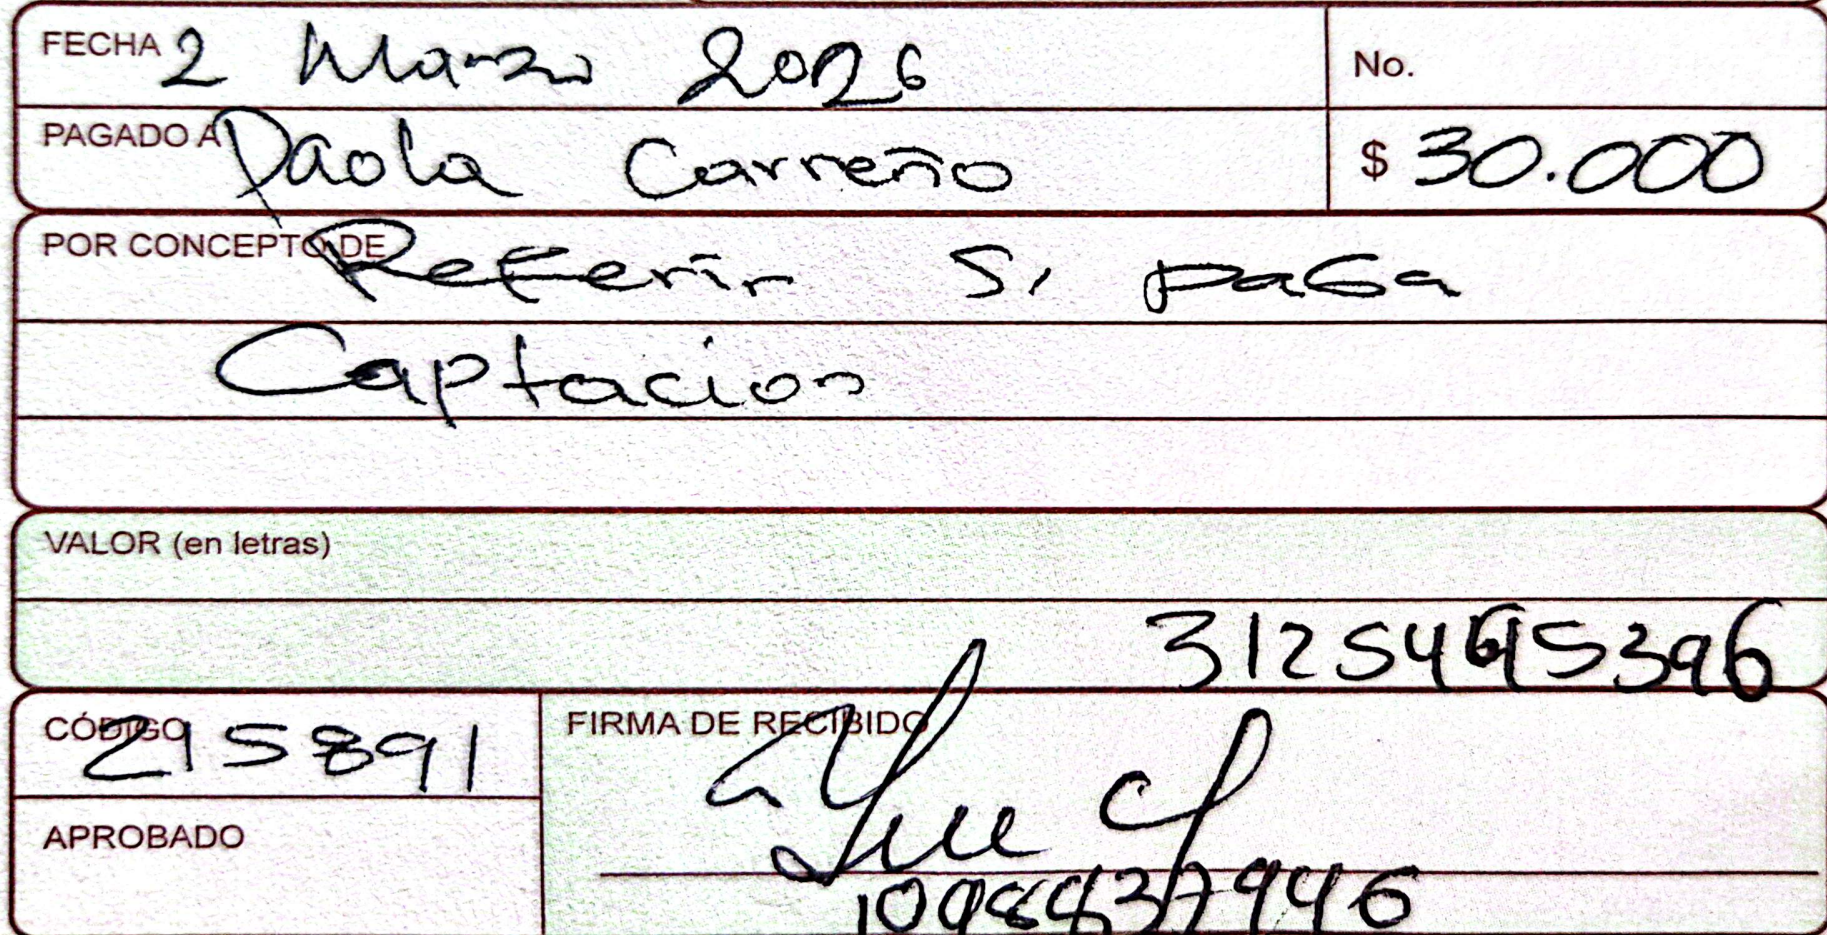 FECHA 2 Marzo 2026
No.
PAGADO A Paola Carreño
$ 30.000
POR CONCEPTO DE Referir Si paGa
Captacion
VALOR (en letras)
CÓDIGO 215891
FIRMA DE RECIBIDO
APROBADO